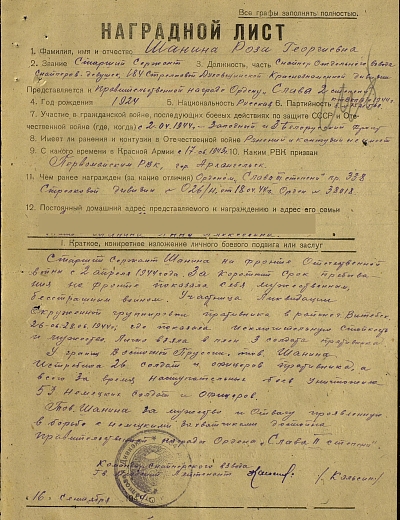 Все графы заполнять полностью.
НАГРАДНОЙ ЛИСТ
1. Фамилия, имя и отчество Шанина Роза Георгиевна
2. Звание Старший Сержант 3. Должность, часть Снайпер Отдельного взвода
Снайперов-девушек, 184 Стрелковой Духовщинской Краснознаменной дивизии
Представляется к правительственной награде Ордену, Слава 2 степени
4. Год рождения 1924 5. Национальность Русская 6. Партийность
7. Участие в гражданской войне, последующих боевых действиях по защите СССР и Оте-
чественной войне (где, когда) с 2.04.1944г. - Западный и 3 Белорусский фронт
8. Имеет ли ранения и контузии в Отечественной войне Ранений и контузий не имеет
9. С какого времени в Красной Армии с 10. Каким РВК призван
Первомайским РВК, гор. Архангельск.
11. Чем ранее награжден (за какие отличия) Орденом „Слава III степени" пр. 338
Стрелковой дивизии № 026/н, от 18.04.44г. Орден № 38018
12. Постоянный домашний адрес представляемого к награждению и адрес его семьи
I. Краткое, конкретное изложение личного боевого подвига или заслуг
Старший сержант Шанина на фронте Отечественной
войны с 2 апреля 1944 года. За короткий срок пребыва
ния на фронте показала себя мужественным,
бесстрашным воином. Участница ликвидации
Окруженной группировки противника в районе Витебск
26-28.06.1944г, где показала исключительную стойкость
и мужество. Лично взяла в плен 3 солдат противника.
У границ Восточной Пруссии, тов. Шанина
Истребила 26 солдат и офицеров противника, а
всего за время наступательных боев уничтожила
53 Немецких солдат и офицеров.
Тов. Шанина за мужество и отвагу проявленную
в борьбе с немецкими захватчиками достойна
правительственной награды Ордена „Слава II степени"
Командир снайперского взвода
Гв. Лейтенант /Кольсин/
16. Сентября